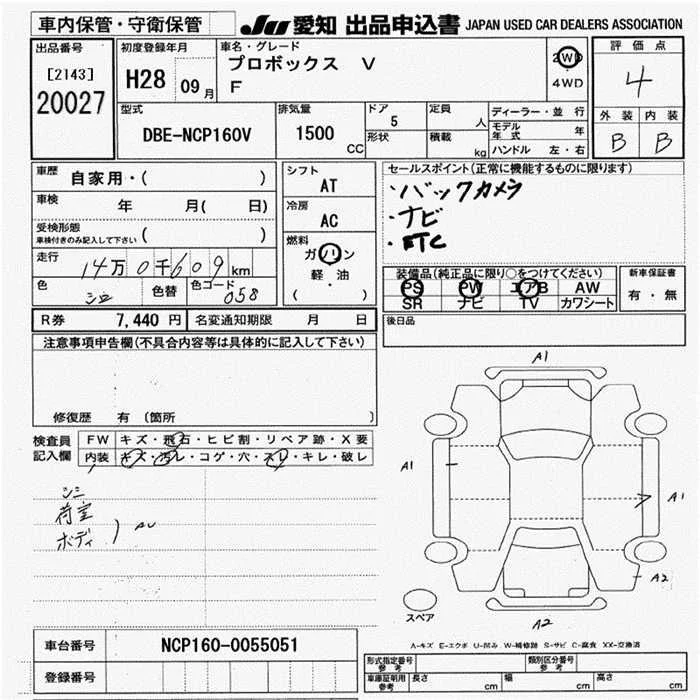 車内保管・守衛保管
JU 愛知 出品申込書 JAPAN USED CAR DEALERS ASSOCIATION
出品番号
[2143]
20027
初度登録年月
H28 09月
車名・グレード
プロボックス V
F
2WD
4WD
評価点
4
外装 内装
B B
型式
DBE-NCP160V
排気量
1500 CC
ドア
5
形状
定員
人
積載
kg
ディーラー・並行
モデル年式 年
ハンドル 左・右
車歴
自家用・( )
車検
年 月( 日)
受検形態
車検付きのみ記入して下さい ( )
走行
14万0千609km
色
シロ
色替
色コード
058
シフト
AT
冷房
AC
燃料
ガソリン
軽・油
( )
セールスポイント(正常に機能するものに限ります)
・バックカメラ
・ナビ
・ETC
装備品(純正品に限り○をつけてください)
PS PW エアB AW
SR ナビ TV カワシート
新車保証書
有・無
R券 7,440円 名変通知期限 月 日
後日品
注意事項申告欄(不具合内容等は具体的に記入して下さい)
修復歴 有 〔箇所 〕
検査員記入欄
FW キズ・飛石・ヒビ割・リペア跡・X要
内装 キズ・汚レ・コゲ・穴・スレ・キレ・破レ
シミ
荷室
ボディ
AU
A1
A1
A1
A2
A2
スペア
A-キズ E-エクボ U-凹み W-補修跡 S-サビ C-腐食 XX-交換済
車台番号 NCP160-0055051
登録番号
形式指定番号 参考
類別区分番号 参考
車庫証明用 参考 長さ cm 幅 cm 高さ cm